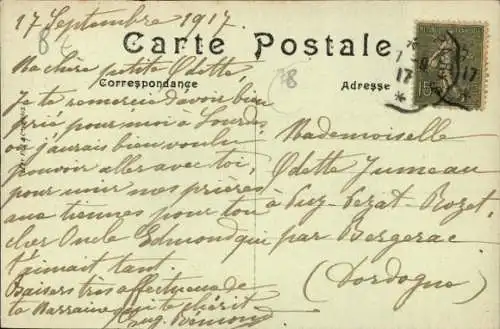 17 Septembre 1917.
Carte Postale
Correspondance
Adresse
Ma chère petite Odette
Je te remercie d'avoir bien
prié pour moi à Lourdes
où j'aurais bien voulu
pouvoir aller avec toi,
pour unir nos prières
aux tiennes pour ton
cher Oncle Edmond qui
t'aimait tant
Baisers très affectueux de
ta Marraine qui te chérit
Mademoiselle
Odette Jumeau
à Puy-Pezat-Rozet
par Bergerac
(Dordogne)
15
17
17